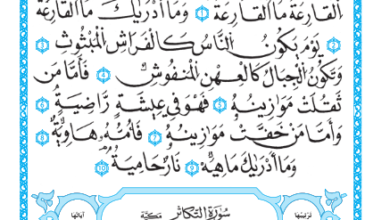 ٱلْقَارِعَةُ مَا ٱلْقَارِعَةُ ۝١ وَمَا أَدْرَىٰكَ مَا ٱلْقَارِعَةُ
۝٢ يَوْمَ يَكُونُ ٱلنَّاسُ كَٱلْفَرَاشِ ٱلْمَبْثُوثِ ۝٣
وَتَكُونُ ٱلْجِبَالُ كَٱلْعِهْنِ ٱلْمَنفُوشِ ۝٤ فَأَمَّا مَن
ثَقُلَتْ مَوَٰزِينُهُۥ ۝٥ فَهُوَ فِى عِيشَةٍ رَّاضِيَةٍ ۝٦
وَأَمَّا مَنْ خَفَّتْ مَوَٰزِينُهُۥ ۝٧ فَأُمُّهُۥ هَاوِيَةٌ ۝٨
وَمَا أَدْرَىٰكَ مَا هِيَهْ ۝٩ نَارٌ حَامِيَةٌ ۝١٠
ترتيبها سُورَةُ ٱلتَّكَاثُرِ مَكِّيَّة آياتها